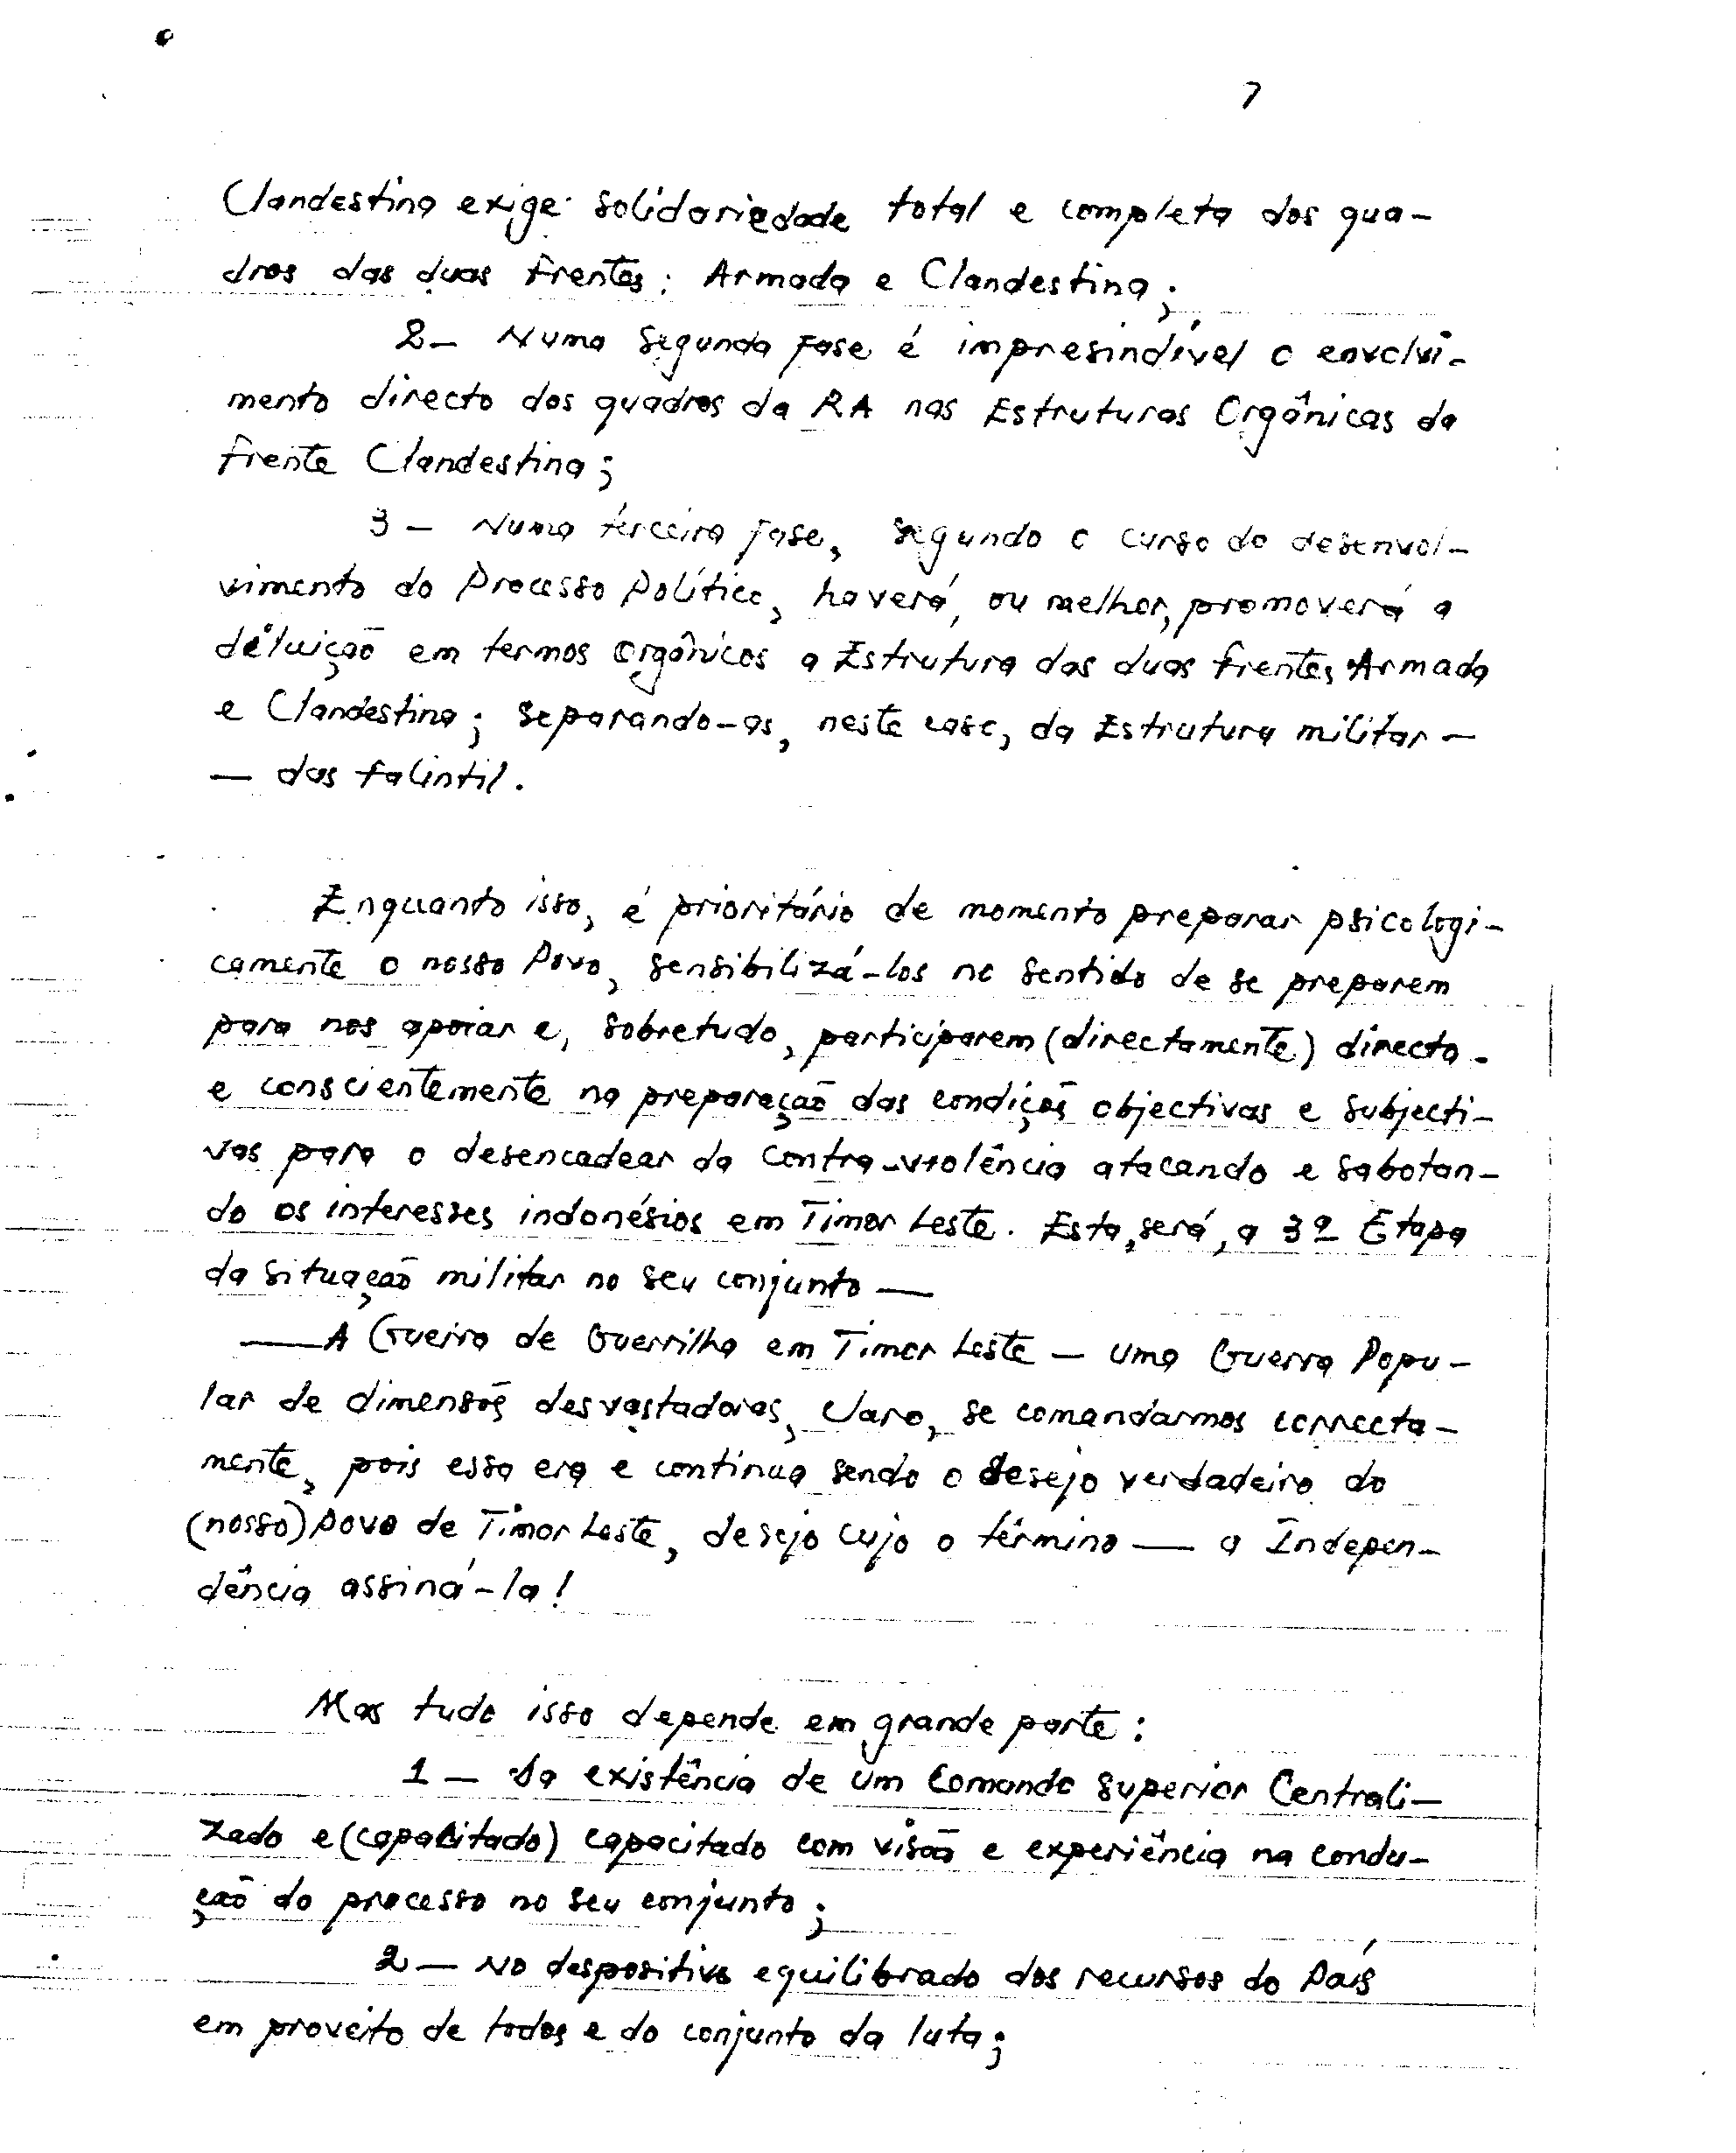 7
Clandestina exige solidariedade total e completa dos qua-
dros das duas frentes: Armada e Clandestina;
2- Numa segunda fase é impresindível o envolvi-
mento directo dos quadros da RA nas Estruturas Orgânicas da
frente Clandestina;
3 - Numa terceira fase, segundo o curso do desenvol-
vimento do Processo Político, haverá, ou melhor, promoverá a
deluição em termos orgânicos a Estrutura das duas frentes Armada
e Clandestina; separando-as, neste caso, da Estrutura militar -
- das falintil.
Enquanto isso, é prioritário de momento preparar psicologi-
camente o nosso Povo, sensibilizá-los no sentido de se preparem
para nos apoiar e, sobretudo, participarem (directamente) directa-
e conscientemente na preparação das condições objectivas e subjecti-
vas para o desencadear da contra-violência atacando e sabotan-
do os interesses indonésios em Timor Leste. Esta, será, a 3ª Etapa
da situação militar no seu conjunto —
— A Guerra de Guerrilha em Timor Leste - uma Guerra Popu-
lar de dimensões desvastadoras, claro, se comandarmos correcta-
mente, pois essa era e continua sendo o desejo verdadeiro do
(nosso) povo de Timor Leste, desejo cujo o término — a Indepen-
dência assiná-la!
Mas tudo isso depende em grande parte:
1 - Da existência de um Comando superior Centrali-
zado e (capacitado) capacitado com visão e experiência na condu-
ção do processo no seu conjunto;
2 - No despositivo equilibrado dos recursos do País
em proveito de todos e do conjunto da luta;